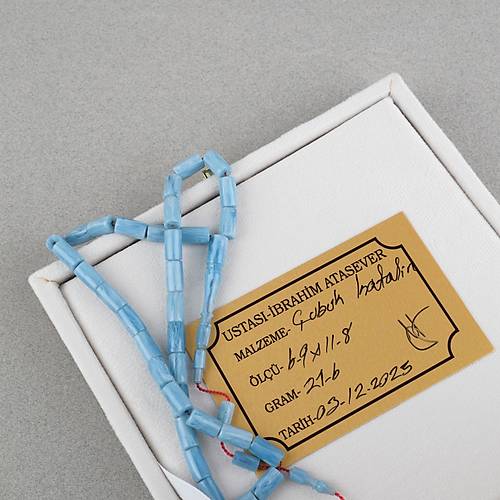 USTASI-İBRAHİM ATASEVER
MALZEME- Çubuk katalin
ÖLÇÜ- 6-9x11-8
GRAM- 21-6
TARİH-03-12-2025